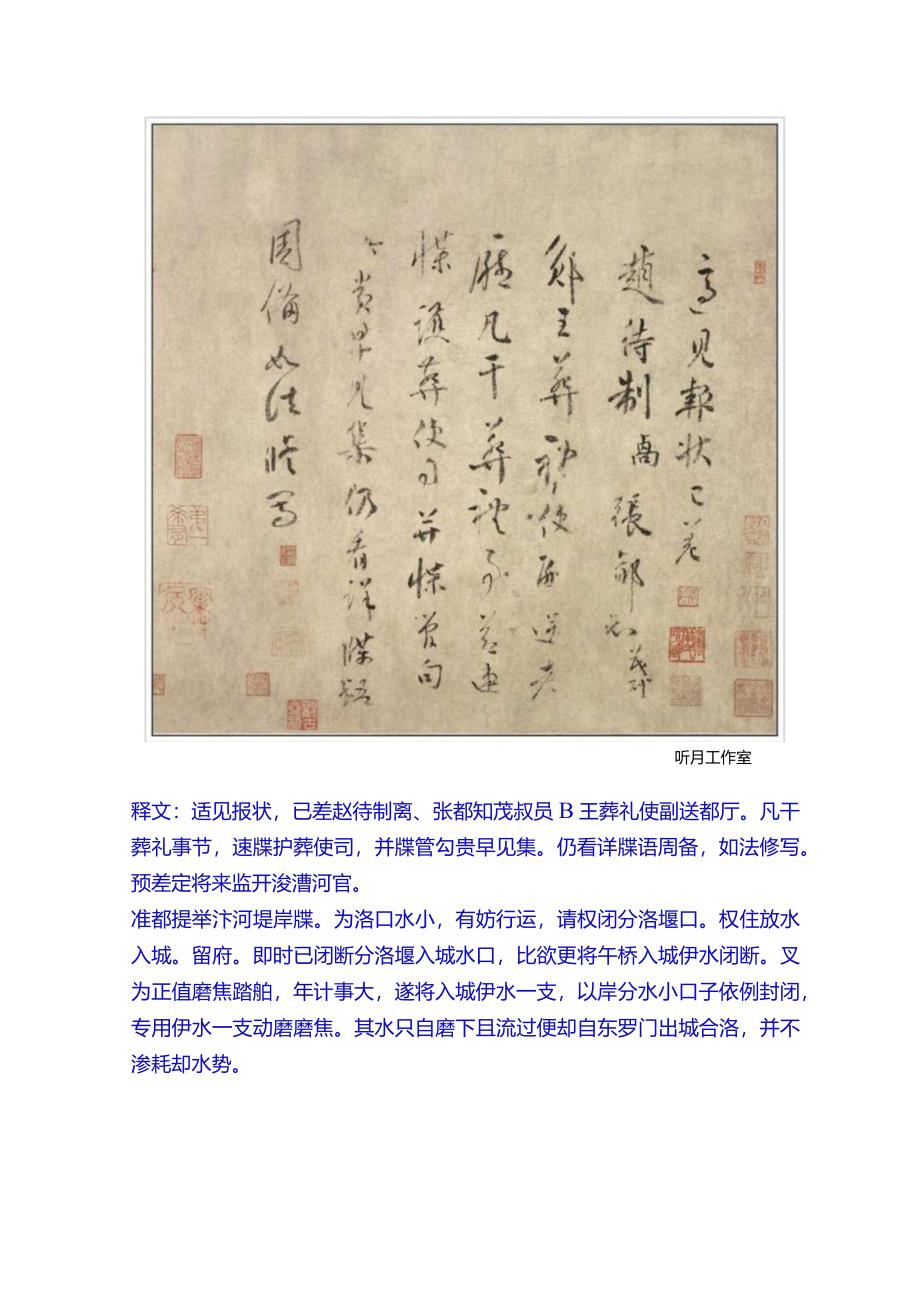 适见報状已差
趙待制卨張都知茂
郑王葬礼使副送都
廳凡干葬礼事节速
牒護葬使司并牒管勾
令貴早見集仍看详牒語
周備如法修写
听月工作室
释文：适见报状，已差赵待制离、张都知茂叔员 B 王葬礼使副送都厅。凡干
葬礼事节，速牒护葬使司，并牒管勾贵早见集。仍看详牒语周备，如法修写。
预差定将来监开浚漕河官。
准都提举汴河堤岸牒。为洛口水小，有妨行运，请权闭分洛堰口。权住放水
入城。留府。即时已闭断分洛堰入城水口，比欲更将午桥入城伊水闭断。叉
为正值磨焦踏舶，年计事大，遂将入城伊水一支，以岸分水小口子依例封闭，
专用伊水一支动磨磨焦。其水只自磨下且流过便却自东罗门出城合洛，并不
渗耗却水势。